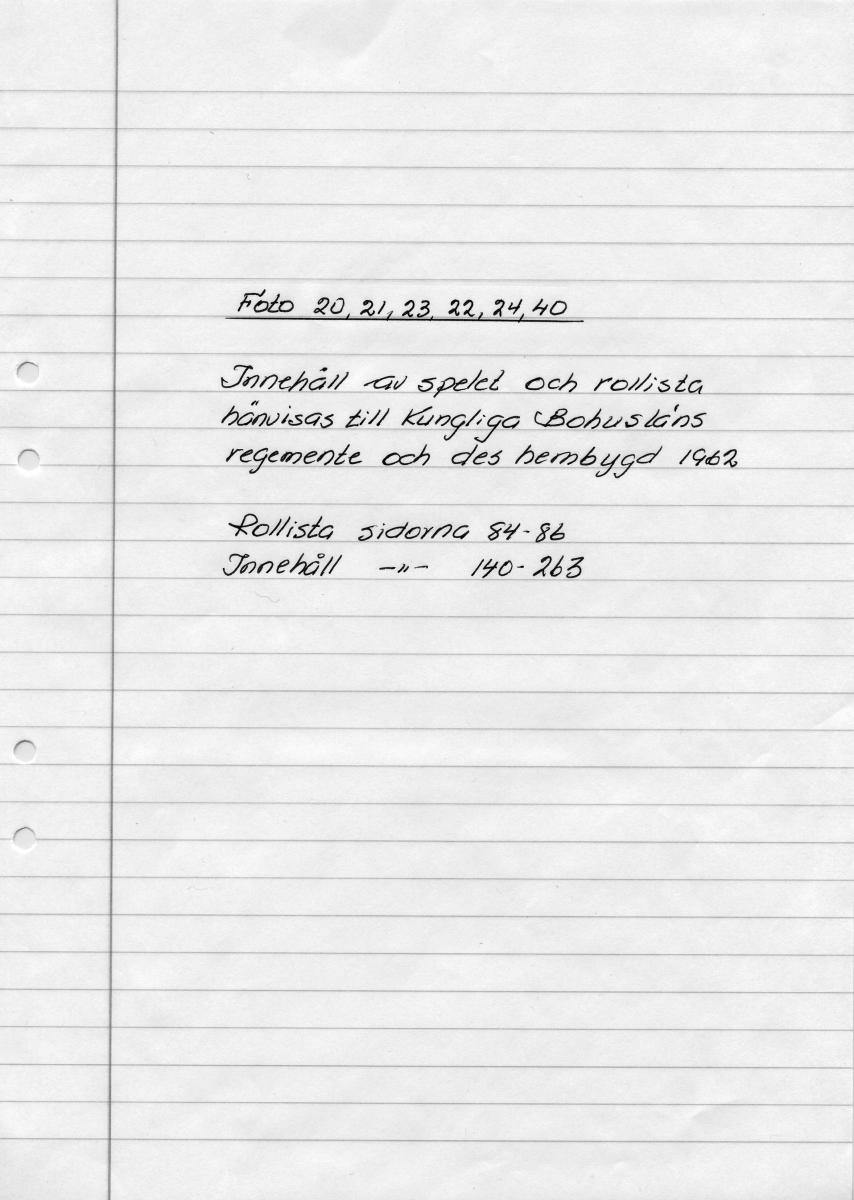 Foto 20, 21, 23, 22, 24, 40
Innehåll av spelet och rollista
hänvisas till Kungliga Bohusläns
regemente och des hembygd 1962
Rollista sidorna 84-86
Innehåll -"- 140-263